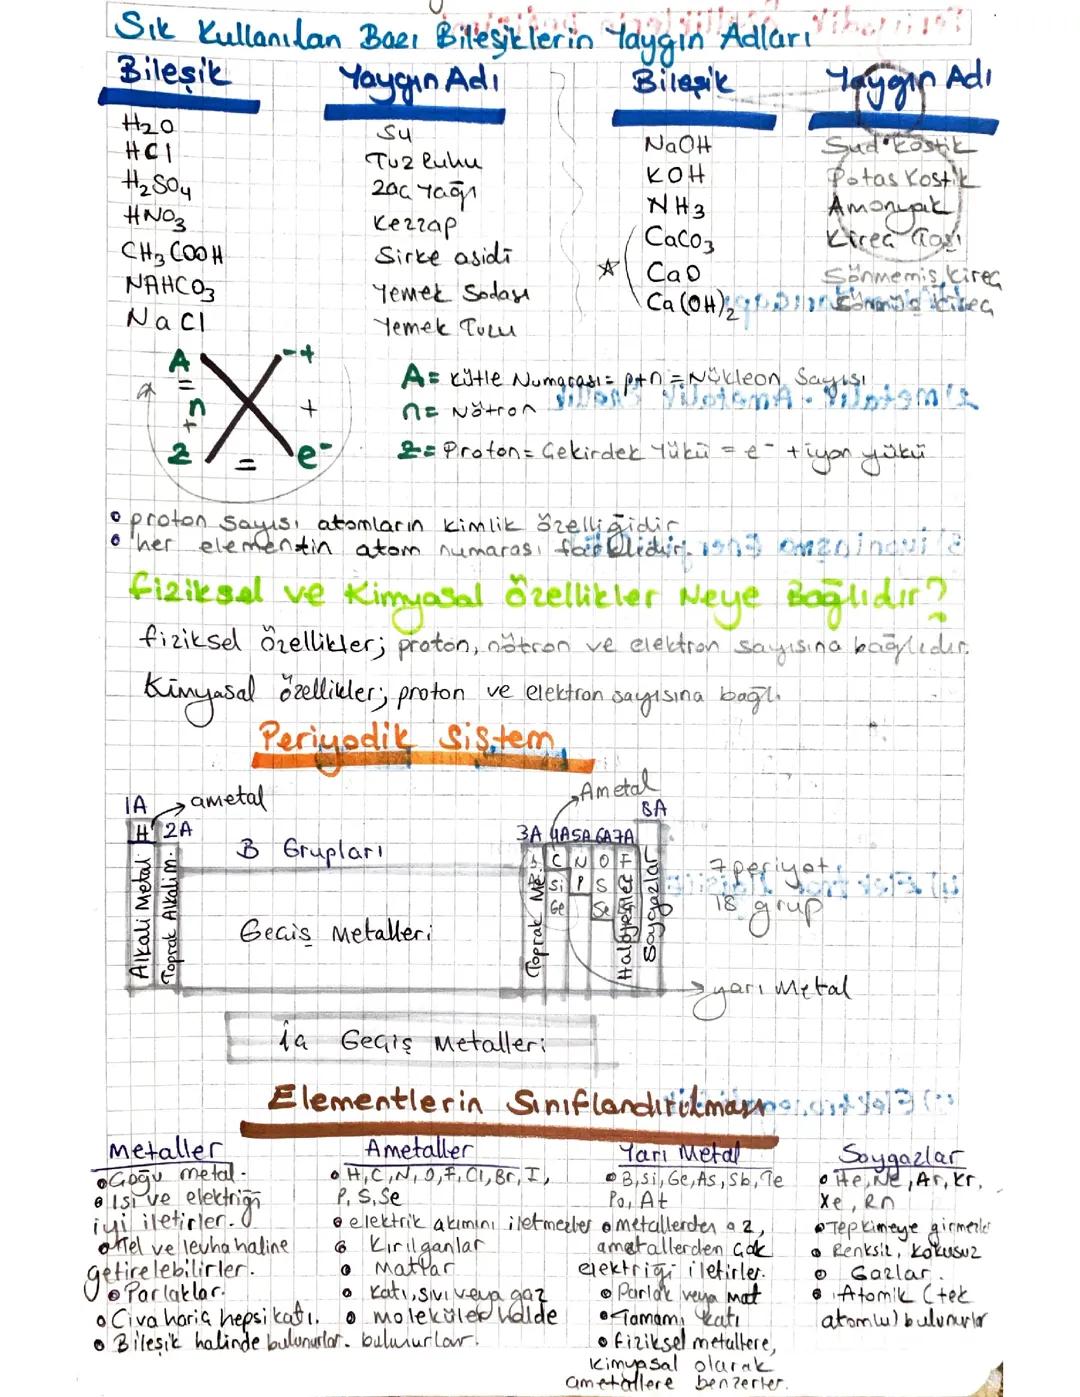 Sık Kullanılan Bazı Bileşiklerin Yaygın Adları
Bileşik Yaygın Adı Bileşik Yaygın Adı
H2O Su
HCl Tuz Ruhu
H2SO4 Zaç Yağı
HNO3 Kezzap
CH3COOH Sirke asidi
NAHCO3 Yemek Sodası
NaCl Yemek Tuzu
NaOH Sud Kostik
KOH Potas Kostik
NH3 Amonyak
CaCO3 Kireç Taşı
CaO Sönmemiş Kireç
Ca(OH)2 Sönmüş Kireç
A -+
= n + +
Z = e-
A = Kütle Numarası = p+n = Nükleon Sayısı
n = Nötron
Z = Proton = Çekirdek Yükü = e- + iyon yükü
• proton sayısı atomların kimlik özelliğidir
• her elementin atom numarası farklıdır.
Fiziksel ve Kimyasal Özellikler Neye Bağlıdır?
fiziksel özellikler; proton, nötron ve elektron sayısına bağlıdır.
Kimyasal özellikler; proton ve elektron sayısına bağlı.
Periyodik Sistem
1A ametal Ametal 8A
H 2A 3A 4A 5A 6A 7A
B Grupları
C N O F
Si P S
Ge Se
Alkali Metal
Toprak Alkalim.
Geçiş Metalleri
Toprak Me.
Halojenler
Soygazlar
7 periyot
18 grup
yarı Metal
İç Geçiş Metalleri
Elementlerin Sınıflandırılması
Metaller
• Çoğu metal.
• Isı ve elektriği
iyi iletirler.
• Tel ve levha haline
getirelebilirler.
• Parlaklar.
• Civa hariç hepsi katı.
• Bileşik halinde bulunurlar.
Ametaller
• H, C, N, O, F, Cl, Br, I,
P, S, Se
• elektrik akımını iletmezler
• Kırılganlar
• Mattar
• Katı, sıvı veya gaz
• moleküler halde
bulunurlar.
Yarı Metal
• B, Si, Ge, As, Sb, Te
Po, At
• metallerden az,
ametallerden çok
elektriği iletirler.
• Parlak veya mat
• Tamamı katı
• fiziksel metallere,
kimyasal olarak
ametallere benzerler.
Soygazlar
• He, Ne, Ar, Kr,
Xe, Rn
• Tepkimeye girmezler
• Renksiz, kokusuz
• Gazlar.
• Atomik (tek
atomlu) bulunurlar